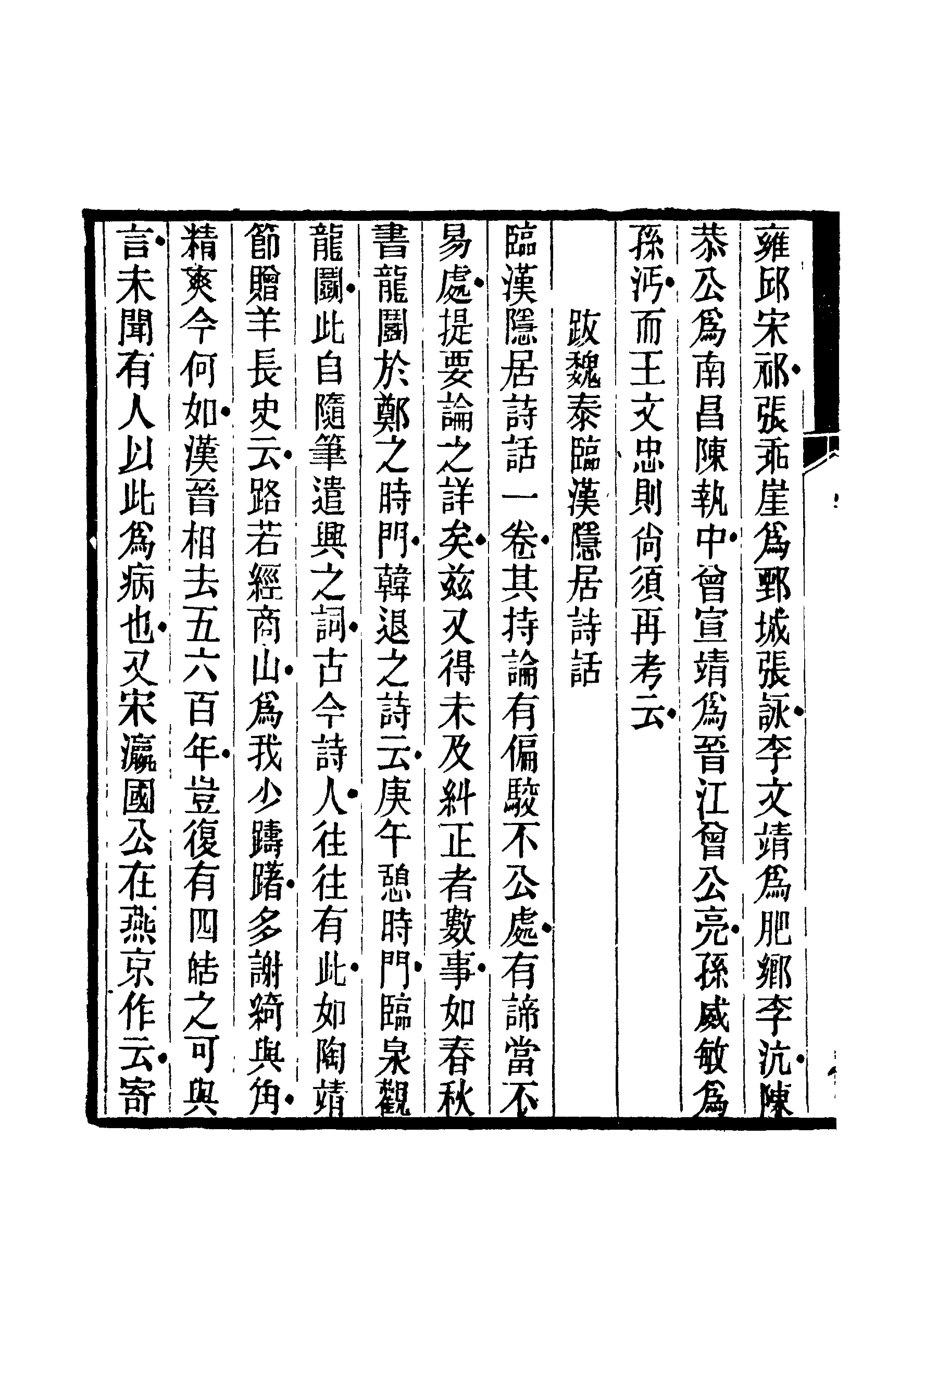 雍邱宋祁張乖崖爲鄄城張詠李文靖爲肥鄉李沆陳
恭公爲南昌陳執中曾宣靖爲晉江曾公亮孫威敏爲
孫沔而王文忠則尙須再考云
跋魏泰臨漢隱居詩話
臨漢隱居詩話一卷其持論有偏駮不公處有諦當不
易處提要論之詳矣茲又得未及糾正者數事如春秋
書龍鬭於鄭之時門韓退之詩云庚午憩時門臨泉觀
龍鬭此自隨筆遣興之詞古今詩人往往有此如陶靖
節贈羊長史云路若經商山爲我少躊躇多謝綺與角
精爽今何如漢晉相去五六百年豈復有四皓之可與
言未聞有人以此爲病也又宋瀛國公在燕京作云寄